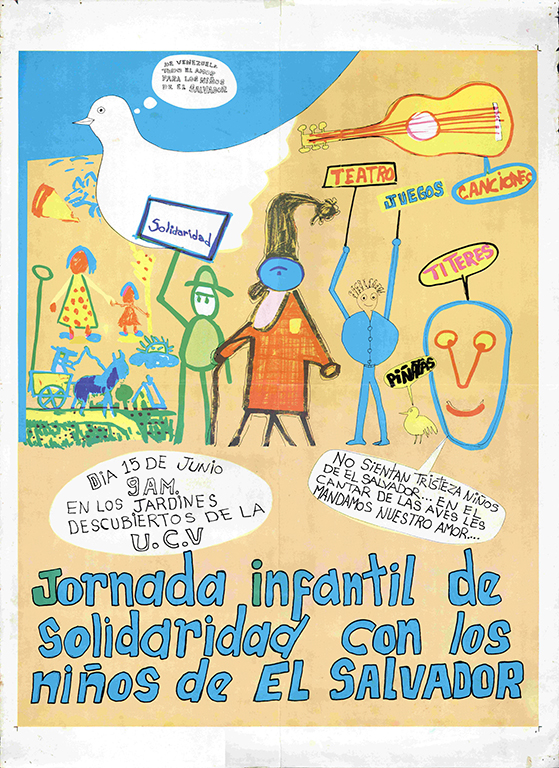 DE VENEZUELA
TODO EL AMOR
PARA LOS NIÑOS
DE EL SALVADOR
TEATRO
JUEGOS
CANCIONES
Solidaridad
TITERES
PIÑATAS
DIA 15 DE JUNIO
9 AM.
EN LOS JARDINES
DESCUBIERTOS DE LA
U.C.V
NO SIENTAN TRISTEZA NIÑOS
DE EL SALVADOR... EN EL
CANTAR DE LAS AVES LES
MANDAMOS NUESTRO AMOR...
Jornada infantil de
solidaridad con los
niños de EL SALVADOR